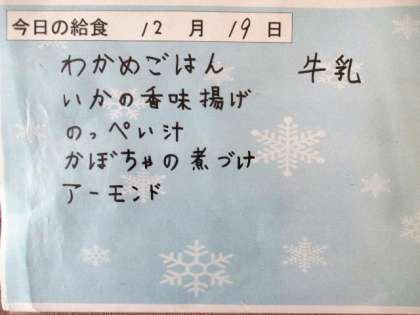 今日の給食 12月19日
わかめごはん 牛乳
いかの香味揚げ
のっぺい汁
かぼちゃの煮づけ
アーモンド